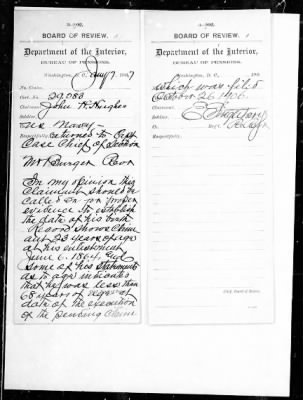 3-892.
BOARD OF REVIEW.
Department of the Interior,
BUREAU OF PENSIONS.
Washington, D. C., Jany 7, 1907
No. Claim
Cert. No. 29.083
Claimant, John K. Hughes
Soldier,
US Navy
Respectfully returned to Capt
Case Chief of
Mr Burger
In my opinion this
Claimant should be
called on for proper
evidence to establish
the date of his birth
Record shows Claim
ant 23 years of age
at his enlistment
June 6. 1864. and
some of his statements
as to age indicates
that he was less than
68 years of age at
date of the execution
of the pending Claim
BOARD OF REVIEW.
Department of the Interior,
BUREAU OF PENSIONS.
Washington, D. C., 190
No.
which was filed
October 26. 1906.
Claimant,
Soldier,
Co. Regt.
Respectfully,
Chief, Board of Review.